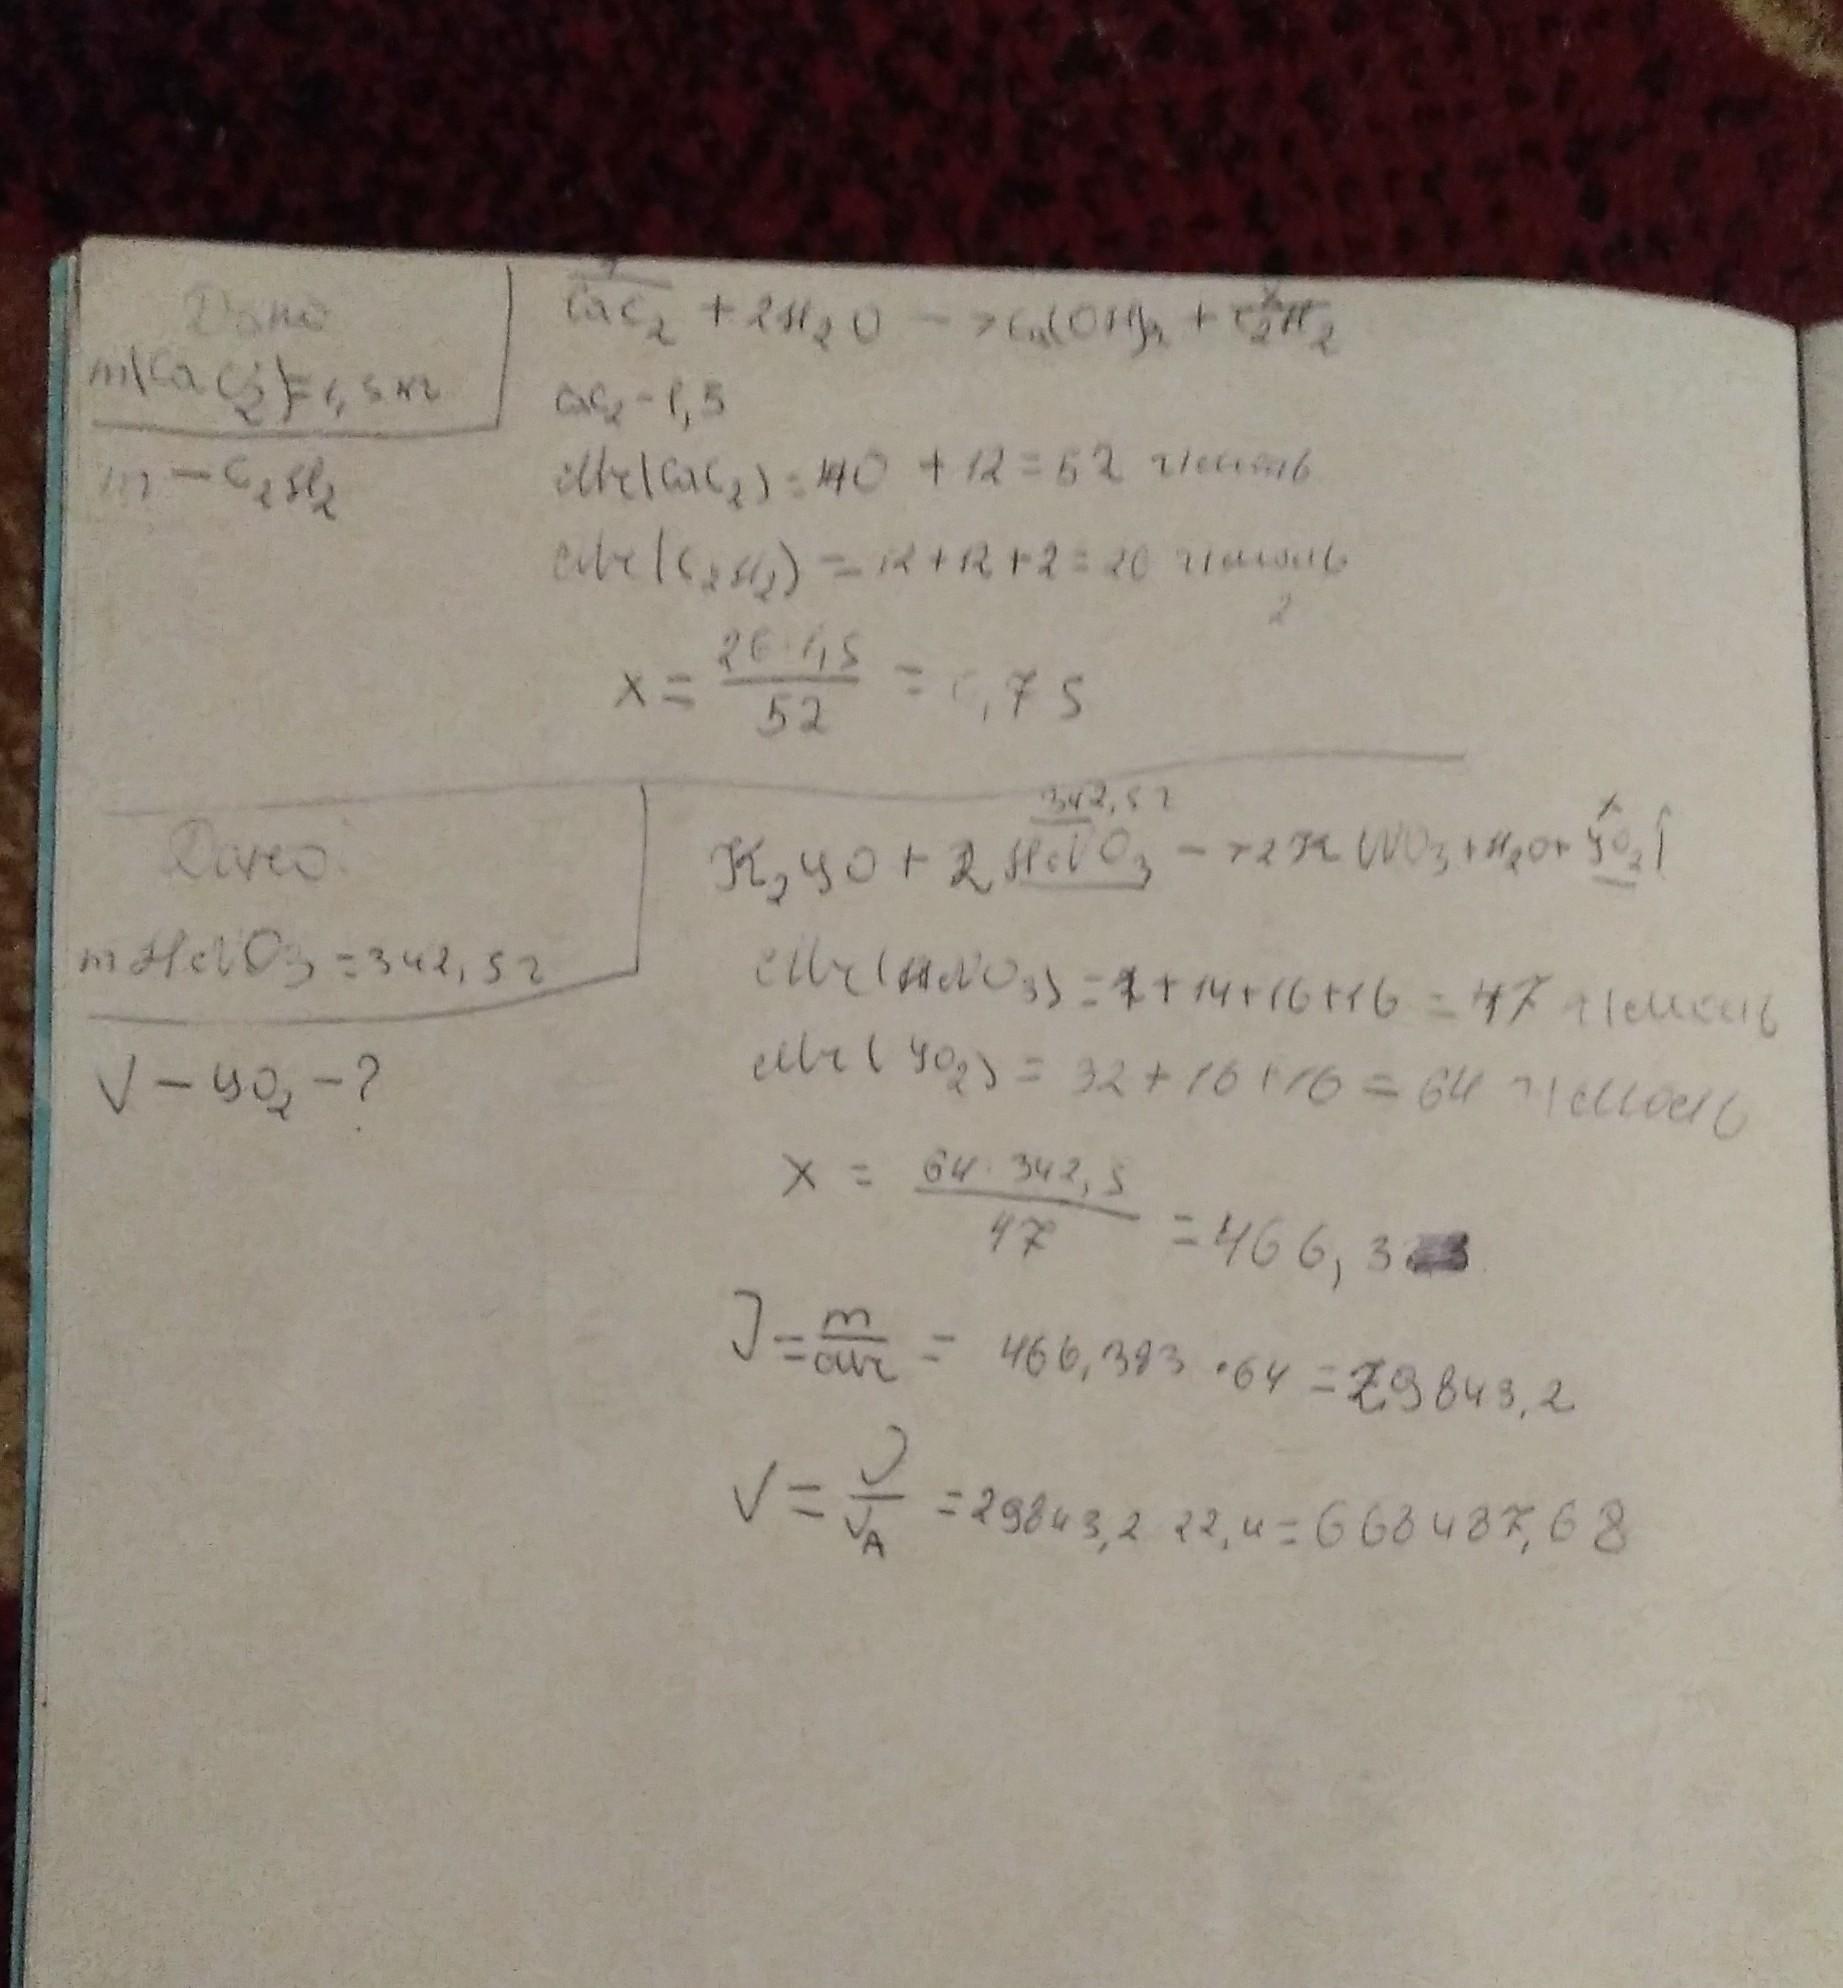 Дано
m(CaC2)=1,5кг
m – C2H2
CaC2 + 2H2O –> Ca(OH)2 + C2H2
x
CaC2 – 1,5
Mr(CaC2) = 40 + 12 = 52 г/моль
Mr(C2H2) = 12+12+2=26 г/моль
2
x = 26·1,5/52 = 0,75
Дано:
mHNO3 = 342,5г
V – SO2 – ?
342,5г
x
K2SO + 2HNO3 –> 2KNO3 + H2O + SO2↑
Mr(HNO3) = 1+14+16+16 = 47 г/моль
Mr(SO2) = 32+16+16 = 64 г/моль
x = 64·342,5/47 = 466,3
J = m/Mr = 466,383·64 = 29843,2
V = J/VA = 29843,2 22,4 = 668487,68